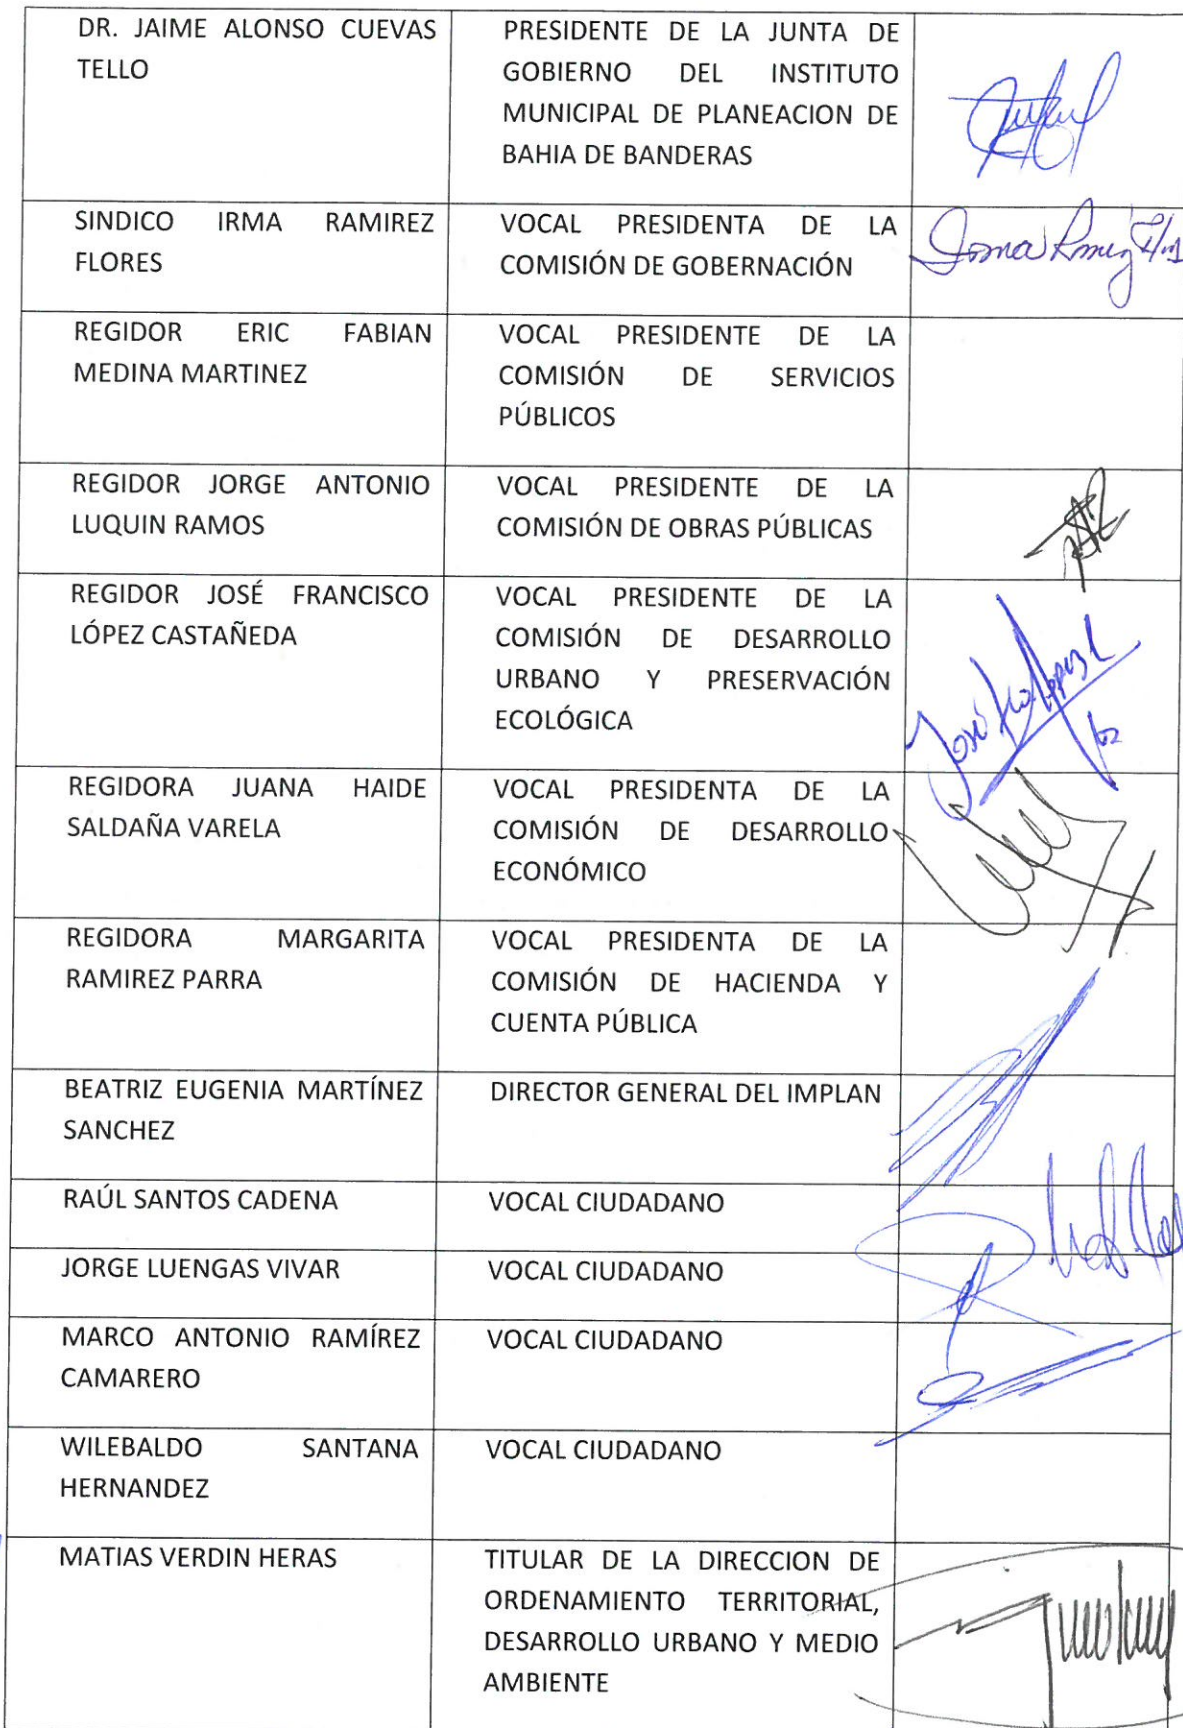 DR. JAIME ALONSO CUEVAS TELLO
PRESIDENTE DE LA JUNTA DE GOBIERNO DEL INSTITUTO MUNICIPAL DE PLANEACION DE BAHIA DE BANDERAS
SINDICO IRMA RAMIREZ FLORES
VOCAL PRESIDENTA DE LA COMISIÓN DE GOBERNACIÓN
Irma
REGIDOR ERIC FABIAN MEDINA MARTINEZ
VOCAL PRESIDENTE DE LA COMISIÓN DE SERVICIOS PÚBLICOS
REGIDOR JORGE ANTONIO LUQUIN RAMOS
VOCAL PRESIDENTE DE LA COMISIÓN DE OBRAS PÚBLICAS
REGIDOR JOSÉ FRANCISCO LÓPEZ CASTAÑEDA
VOCAL PRESIDENTE DE LA COMISIÓN DE DESARROLLO URBANO Y PRESERVACIÓN ECOLÓGICA
José
REGIDORA JUANA HAIDE SALDAÑA VARELA
VOCAL PRESIDENTA DE LA COMISIÓN DE DESARROLLO ECONÓMICO
REGIDORA MARGARITA RAMIREZ PARRA
VOCAL PRESIDENTA DE LA COMISIÓN DE HACIENDA Y CUENTA PÚBLICA
BEATRIZ EUGENIA MARTÍNEZ SANCHEZ
DIRECTOR GENERAL DEL IMPLAN
RAÚL SANTOS CADENA
VOCAL CIUDADANO
JORGE LUENGAS VIVAR
VOCAL CIUDADANO
MARCO ANTONIO RAMÍREZ CAMARERO
VOCAL CIUDADANO
WILEBALDO SANTANA HERNANDEZ
VOCAL CIUDADANO
MATIAS VERDIN HERAS
TITULAR DE LA DIRECCION DE ORDENAMIENTO TERRITORIAL, DESARROLLO URBANO Y MEDIO AMBIENTE